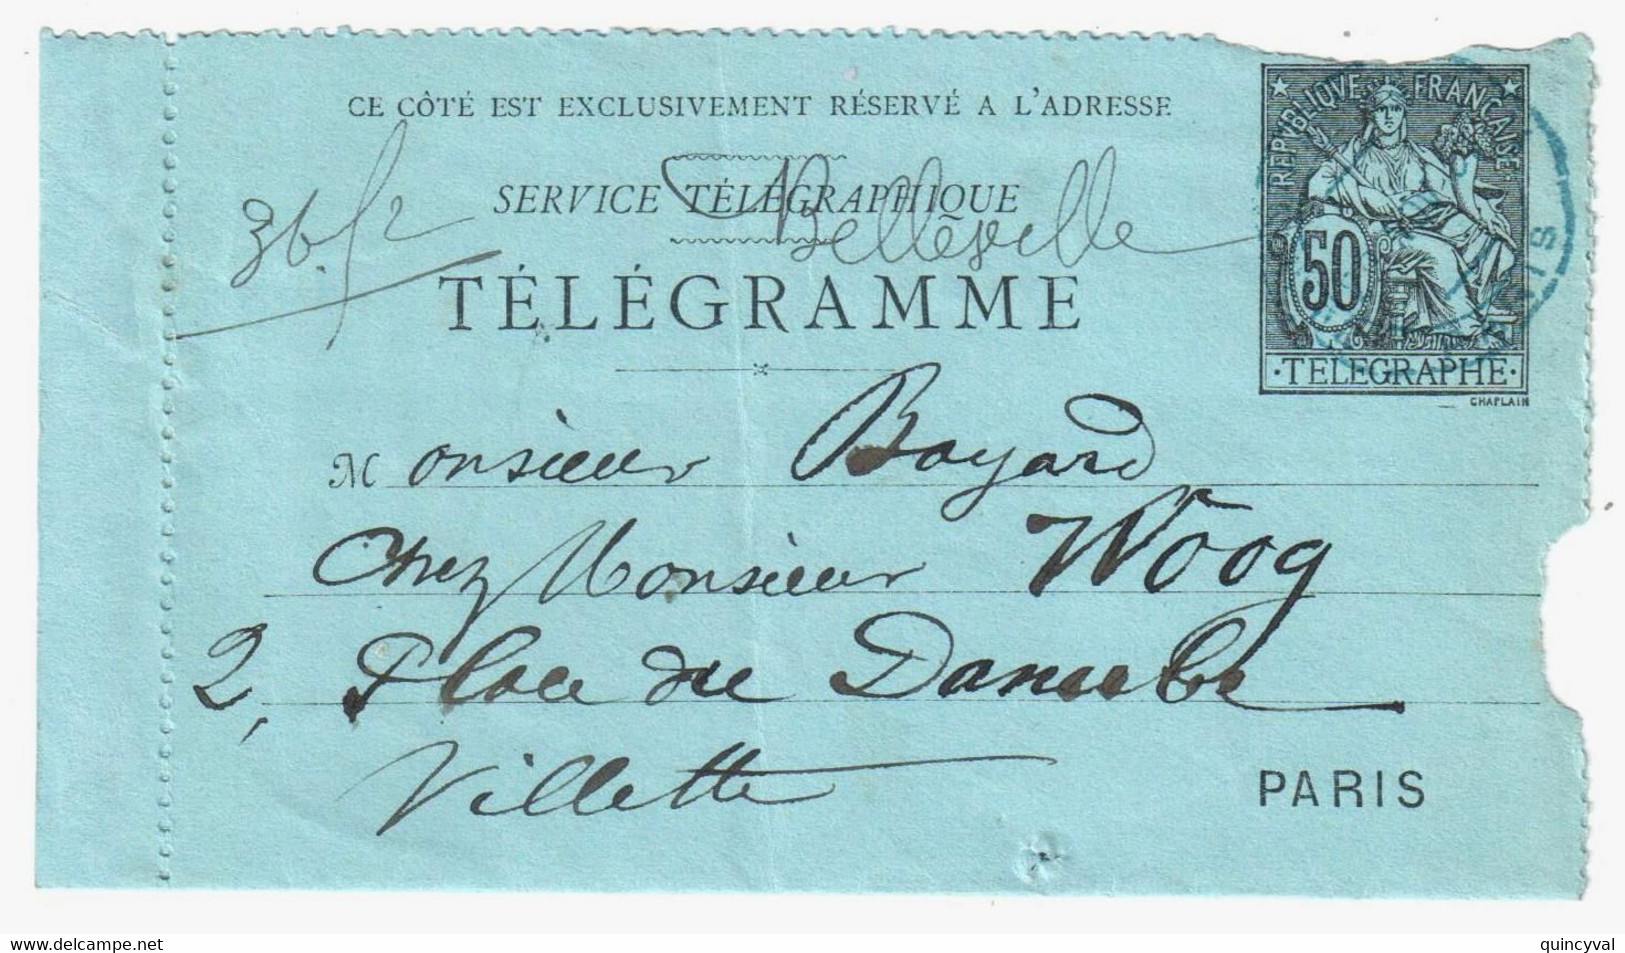 CE CÔTÉ EST EXCLUSIVEMENT RÉSERVÉ A L'ADRESSE
RÉPUBLIQUE FRANÇAISE
SERVICE TÉLÉGRAPHIQUE
Belleville
50
TÉLÉGRAMME
·TÉLÉGRAPHE·
CHAPLAIN
Monsieur Bayard
Chez Monsieur Woog
2, Place du Danube
Villette
PARIS
www.delcampe.net
quincyval